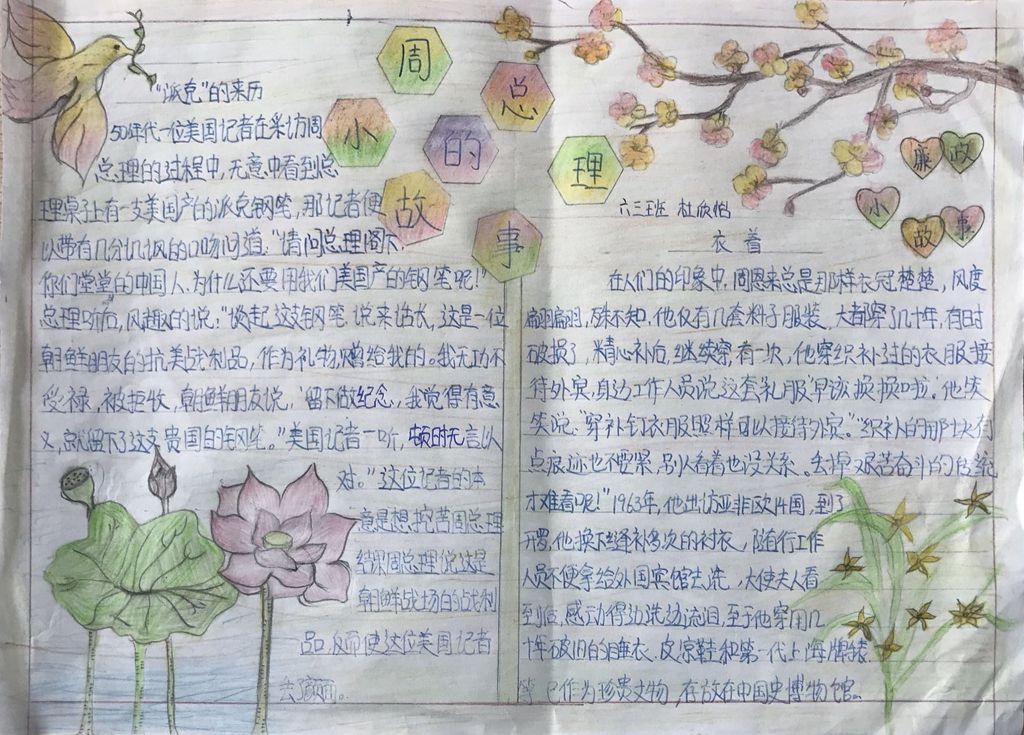 周总理的小故事
廉政小故事
六三班 杜欣怡
“派克”的来历
50年代一位美国记者在采访周
总理的过程中,无意中看到总
理桌上有一支美国产的派克钢笔,那记者便
以带有几分讥讽的口吻问道:“请问总理阁下,
你们堂堂的中国人,为什么还要用我们美国产的钢笔呢!”
总理听后,风趣的说:“谈起这支钢笔,说来话长,这是一位
朝鲜朋友的抗美战利品,作为礼物赠给我的。我无功不
受禄,被拒收,朝鲜朋友说,留下做纪念,我觉得有意
义,就留下了这支贵国的钢笔。”美国记者一听,顿时无言以
对。”这位记者的本
意是想挖苦周总理
结果周总理说这是
朝鲜战场的战利
品,反而使这位美国记者
丢了颜面。
衣着
在人们的印象中,周恩来总是那样衣冠楚楚,风度
翩翩,殊不知,他仅有几套料子服装,大都穿了几十年,有时
破损了,精心补后,继续穿,有一次,他穿织补过的衣服接
待外宾,身边工作人员说这套礼服早该换换啦。他笑
笑说:“穿补钉衣服照样可以接待外宾。”织补的那块有
点痕迹也不要紧,别人看着也没关系。丢掉艰苦奋斗的传统
才难看呢!”1963年,他出访亚非欧14国,到了
开罗,他换下缝补多次的衬衣,随行工作
人员不便拿给外国宾馆去洗,大使夫人看
到后,感动得边洗边流泪,至于他穿用几
十年破旧的睡衣、皮凉鞋和第一代上海牌表
等已作为珍贵文物,在放在中国史博物馆。